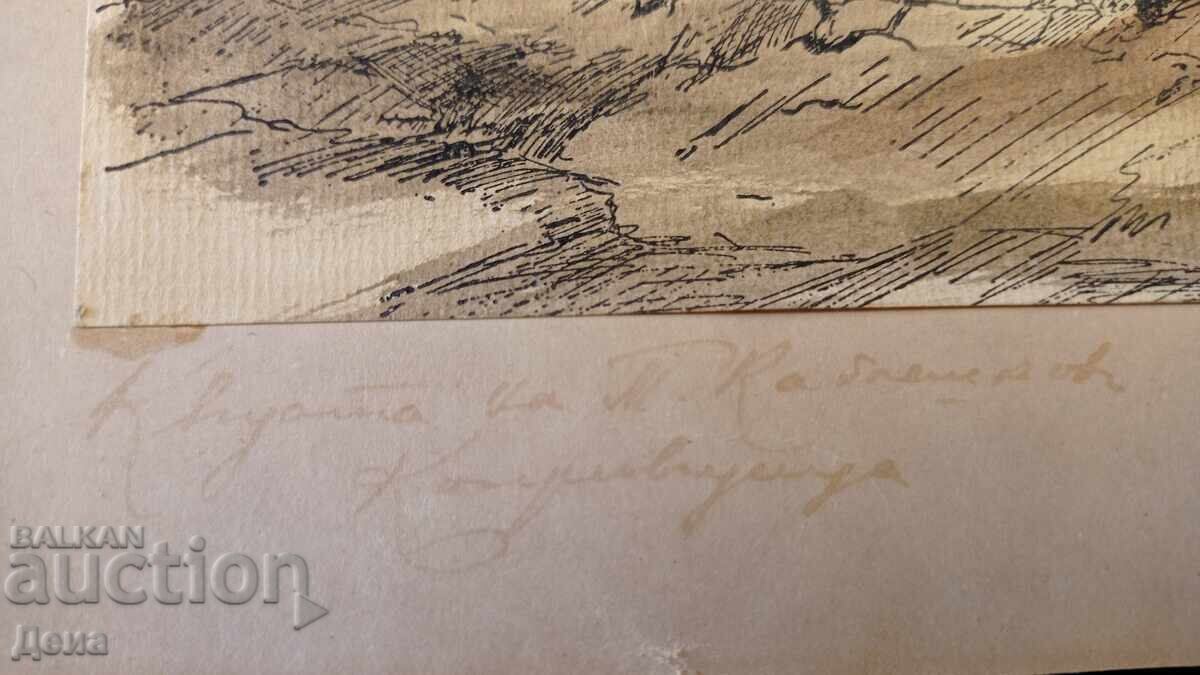 Къщата на Т. Каблешков
Копривщица
BALKAN
auction
Деиа